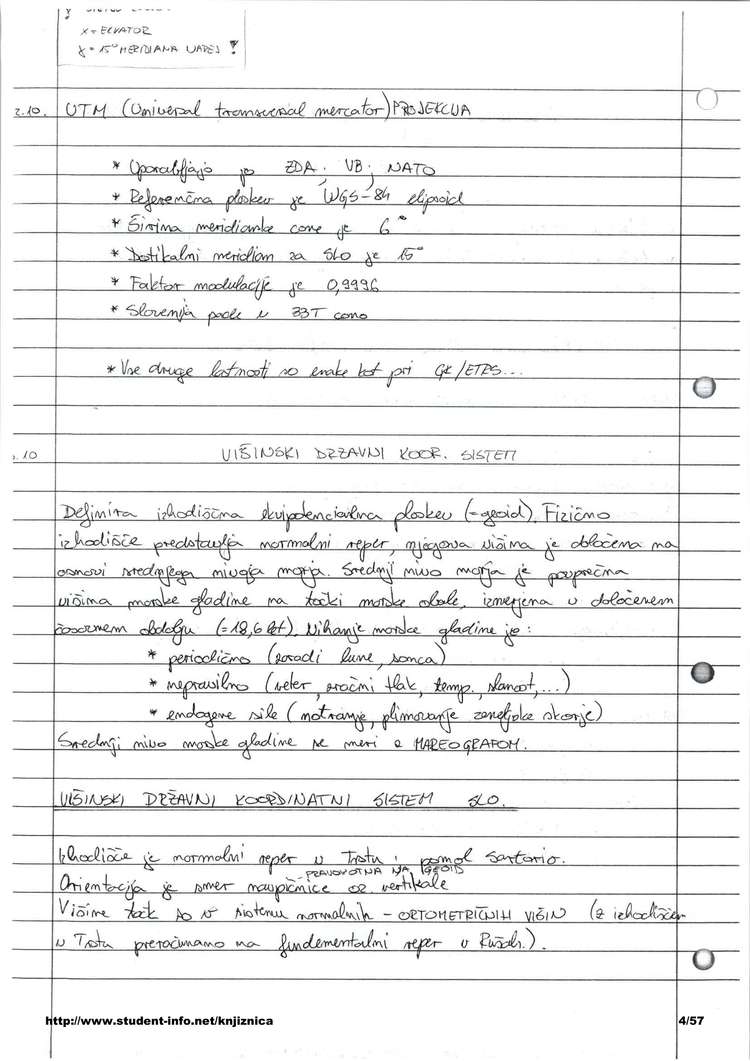 X = EKVATOR
Y = 15° MERIDIANA VAREJ !
2.10. UTM (Universal transversal mercator) PROJEKCIJA
* Uporabljajo jo ZDA, VB, NATO
* Referenčna ploskev je WGS-84 elipsoid
* Širina meridianske cone je 6°
* Dotikalni meridian za SLO je 15°
* Faktor modulacije je 0,9996
* Slovenija pade v 33T cono
* Vse druge lastnosti so enake kot pri GK/ETRS...
.10 VIŠINSKI DRŽAVNI KOOR. SISTEM
Definira izhodiščna ekvipotencialna ploskev (=geoid). Fizično
izhodišče predstavlja normalni reper, njegova višina je določena na
osnovi srednjega nivoja morja. Srednji nivo morja je povprečna
višina morske gladine na točki morske obale, izmerjena v določenem
časovnem obdobju (=18,6 let). Nihanje morske gladine je:
* periodično (zaradi lune, sonca)
* nepravilno (veter, zračni tlak, temp., slanost,...)
* endogene sile (notranje, plimovanje zemeljske skorje)
Srednji nivo morske gladine se meri z MAREOGRAFOM.
VIŠINSKI DRŽAVNI KOORDINATNI SISTEM SLO.
Izhodišče je normalni reper v Trstu, pomol Sartorio.
- PRAVOKOTNA NA GEOID
Orientacija je smer navpičnice oz. vertikale
Višine točk so v sistemu normalnih - ORTOMETRIČNIH VIŠIN (z izhodiščem
v Trstu preračunamo na fundementalni reper v Rušah.).
http://www.student-info.net/knjiznica
4/57